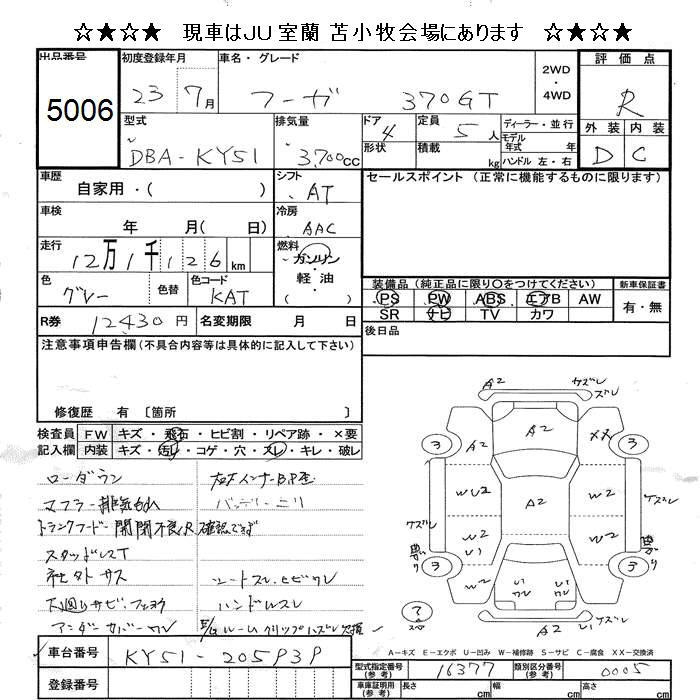 ☆★☆★ 現車はJU室蘭 苫小牧会場にあります ☆★☆★
出品番号 5006
初度登録年月 23 7月
車名・グレード フーガ 370GT
2WD ・ 4WD
評価点 R
型式 DBA-KY51
排気量 3,700cc
ドア 4 形状
定員 5人 積載 kg
ディーラー・並行
モデル年式 年
ハンドル 左・右
外装 内装
D C
車歴 自家用・( )
シフト AT
セールスポイント (正常に機能するものに限ります)
車検 年 月( 日)
冷房 AAC
走行 12万1千126km
燃料 ガソリン・軽油
色 グレー 色替
色コード KAT
装備品 (純正品に限り○をつけてください)
新車保証書
PS PW ABS エアB AW
SR ナビ TV カワ
有・無
R券 12430円 名変期限 月 日
後日品
注意事項申告欄(不具合内容等は具体的に記入して下さい)
修復歴 有 〔箇所 〕
検査員記入欄
FW キズ・飛石・ヒビ割・リペア跡・×要
内装 キズ・汚レ・コゲ・穴・スレ・キレ・破レ
ローダウン
マフラー排気もれ
バッテリーミリ
トランクフード開閉不良 確認できず
スタッドレスT
社外サス
シートスレ・ヒビワレ
下廻りサビ・フショク
ハンドルスレ
アンダーカバーワレ
E/Gルームクリップハズレ欠損
A2 キズレ ズレ
3 A2 A2 XX 3
WU2 A2 W2 キズレ
キズレ W2 U1 W2
3 W2 W2 3
? スペア
A2 U1 キズレ
A-キズ E-エクボ U-凹み W-補修跡 S-サビ C-腐食 XX-交換済
車台番号 KY51-205939
型式指定番号(参考) 16377
類別区分番号(参考) 0005
登録番号
車庫証明用(参考) 長さ cm 幅 cm 高さ cm